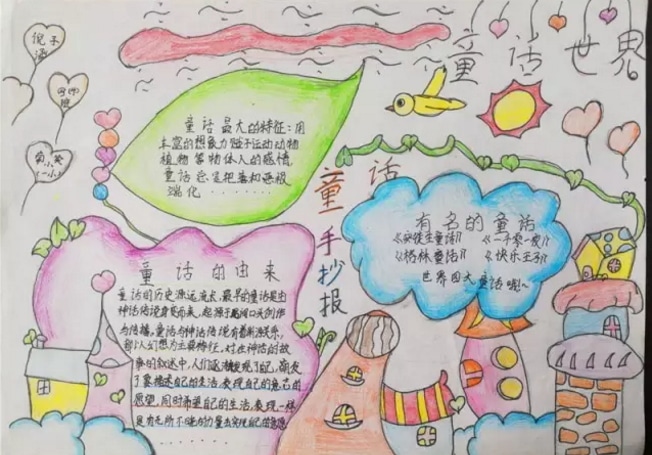 童话世界
倪子涵
童话最大的特征:用
丰富的想象力赋予运动动物
植物等物体人的感情,
童话总是把善和恶极
端化........
童话
手抄报
有名的童话
《安徒生童话》 《一千零一夜》
《格林童话》 《快乐王子》
世界四大童话呢!~
童话的由来
童话的历史源远流长,最早的童话是由
神话传说
起源于
作
与传播,童话与神话传说有着
人幻想为主要特征,对在神话的故
事的叙述中,人们
发现了自己,萌发
了要描述自己的生活,表现自己的意志的
愿望,同时希望自己的生活,表现一样
具有无所不能的力量去实现自己的意愿